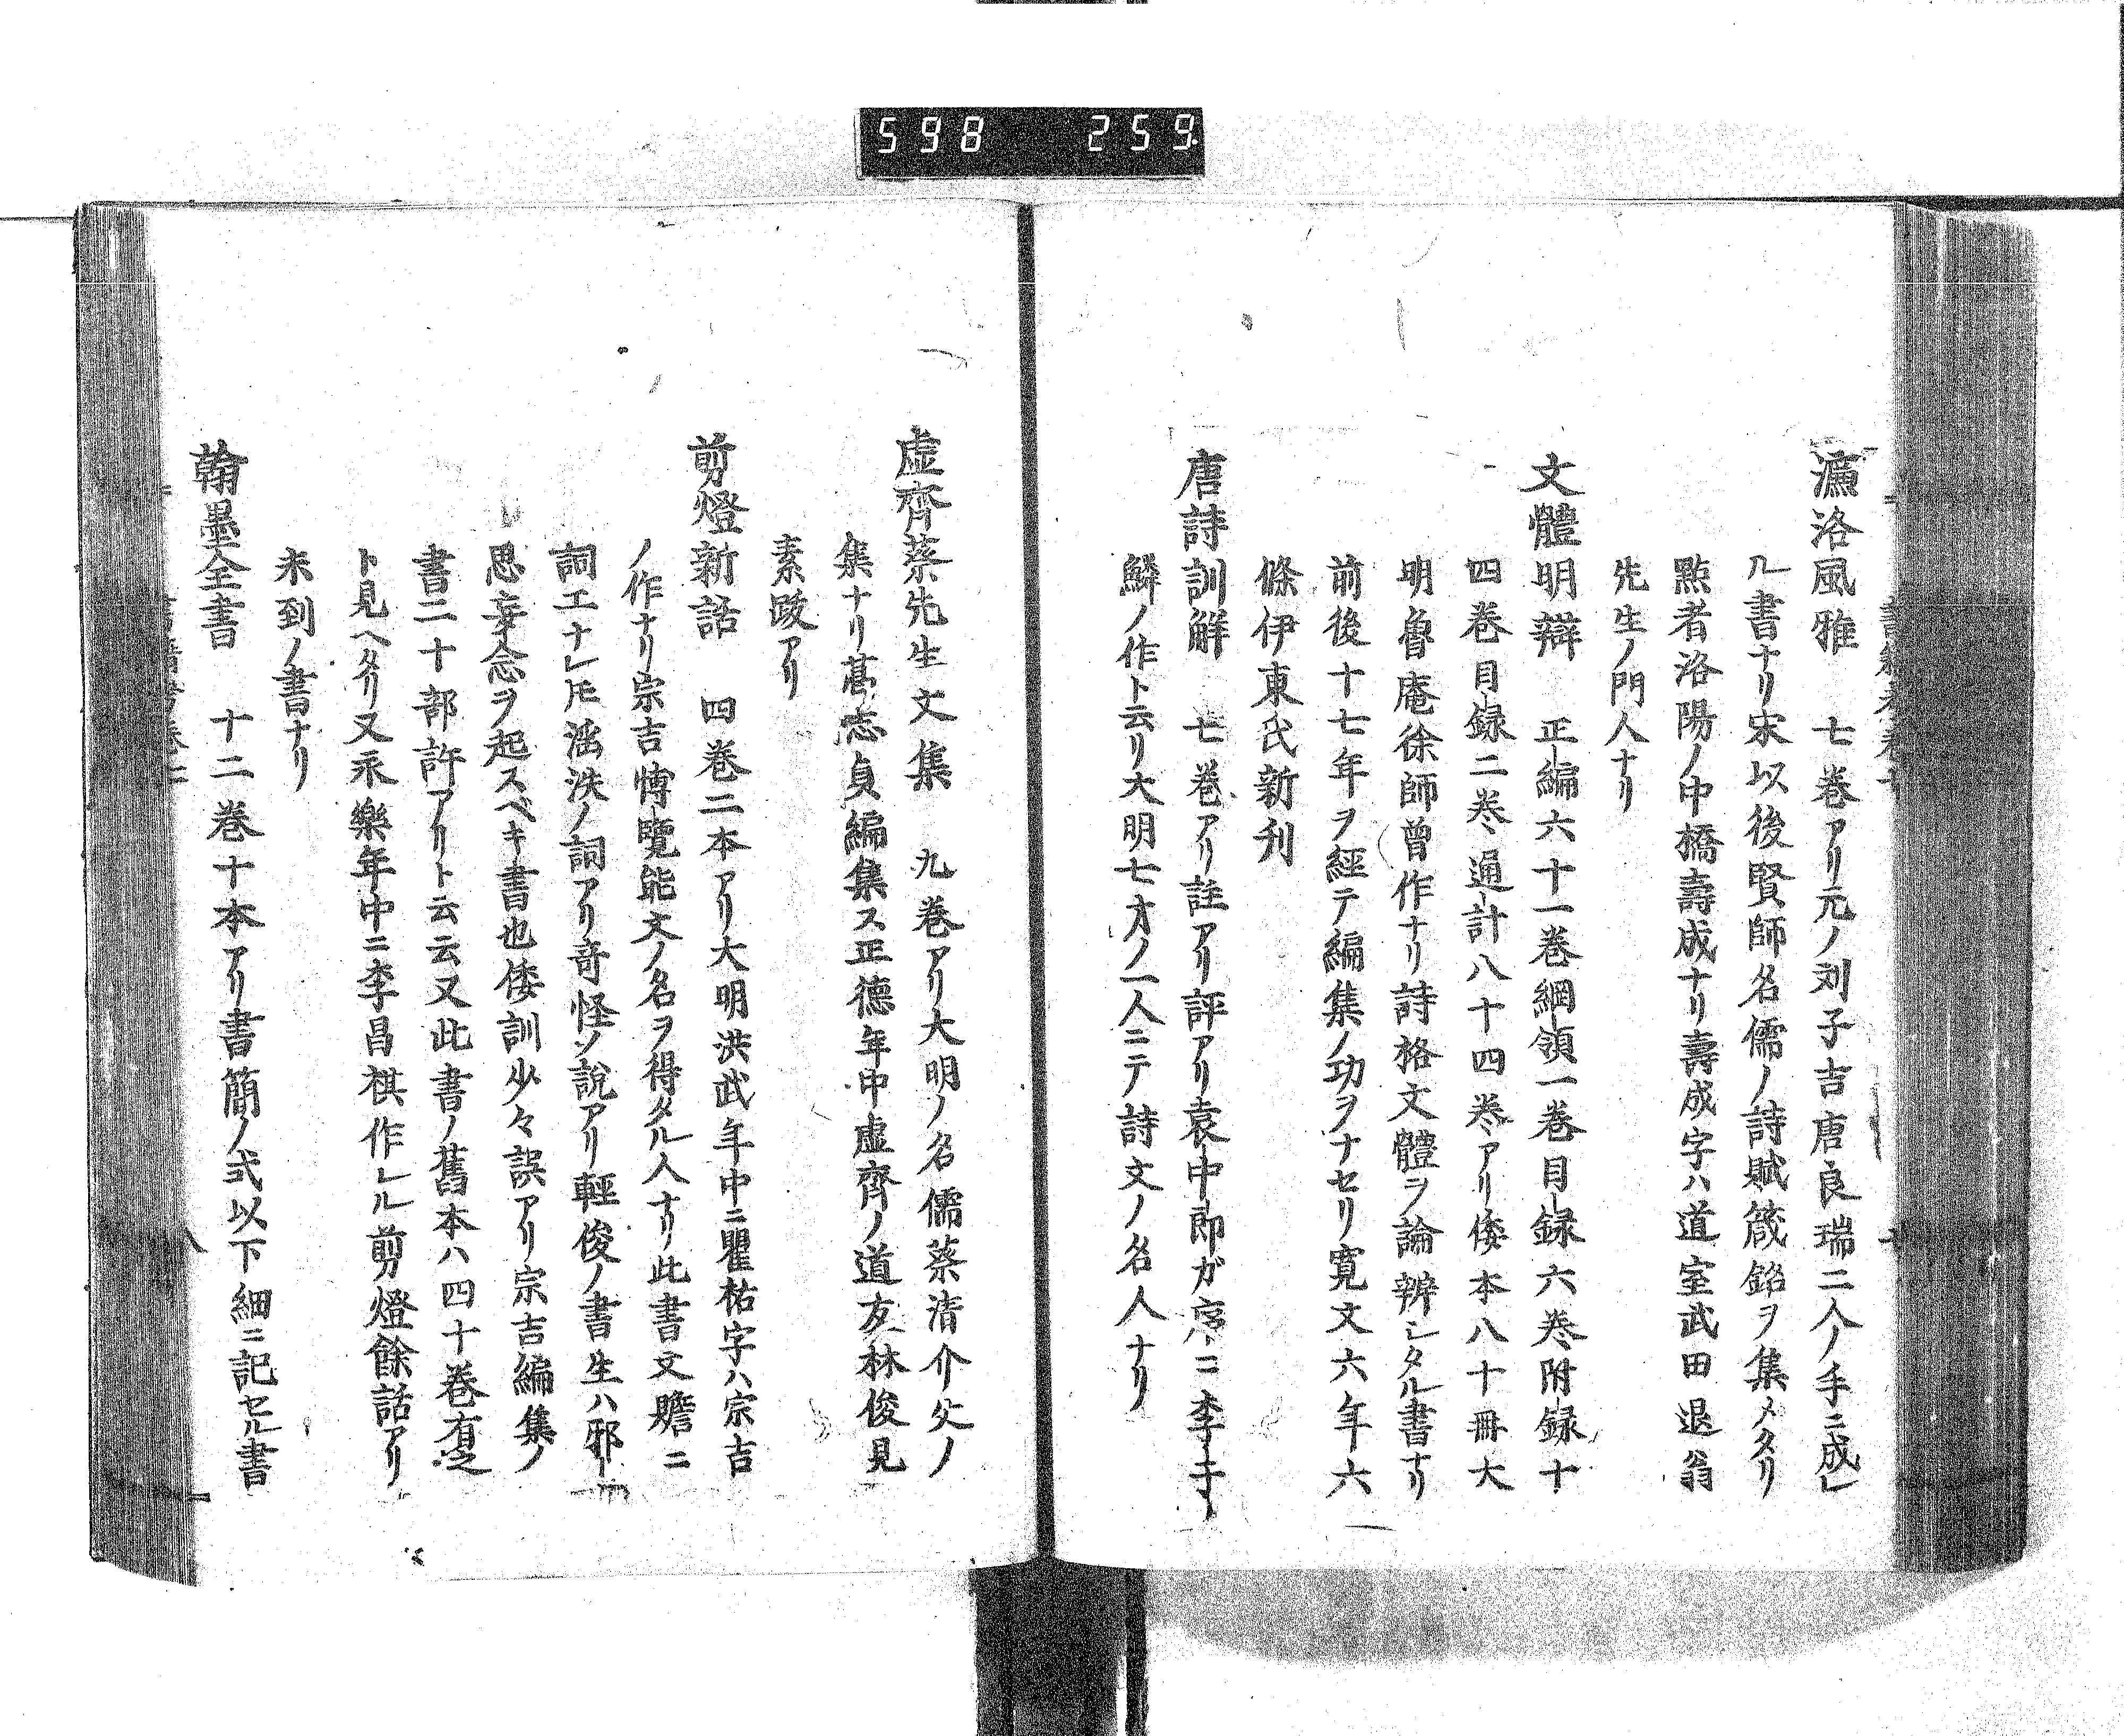 598 259
濂洛風雅 七巻アリ元ノ刘子吉唐良瑞二人ノ手ニ成レ
ル書ナリ宋以後賢師名儒ノ詩賦箴銘ヲ集メタリ
點者洛陽ノ中橋壽成ナリ壽成字ハ道室武田退翁
先生ノ門人ナリ
文體明辯 正編六十一巻綱領一巻目録六巻附録十
四巻目録二巻通計八十四巻アリ倭本八十冊大
明魯庵徐師曾作ナリ詩格文體ヲ論辨シタル書ナリ
前後十七年ヲ經テ編集ノ功ヲナセリ寛文六年六
條伊東氏新刋
唐詩訓解 七巻アリ註アリ評アリ袁中郎ガ序ニ李于
鱗ノ作ト云リ大明七才ノ一人ニテ詩文ノ名人ナリ
虚齊蔡先生文集 九巻アリ大明ノ名儒蔡清介夫ノ
集ナリ葛志貞編集ス正德年中虚齊ノ道友林俊見
素跋アリ
剪燈新話 四巻二本アリ大明洪武年中ニ瞿祐字ハ宗吉
ノ作ナリ宗吉博覽能文ノ名ヲ得タル人ナリ此書文贍ニ
詞工ナレ𪜈滛泆ノ詞アリ奇怪ノ說アリ輕俊ノ書生ハ邪
思妄念ヲ起スベキ書也倭訓少々誤アリ宗吉編集ノ
書二十部許アリト云云又此書ノ舊本ハ四十巻有之
ト見ヘタリ又永樂年中ニ李昌祺作レル剪燈餘話アリ
未到ノ書ナリ
翰墨全書 十二巻十本アリ書簡ノ式以下細ニ記セル書